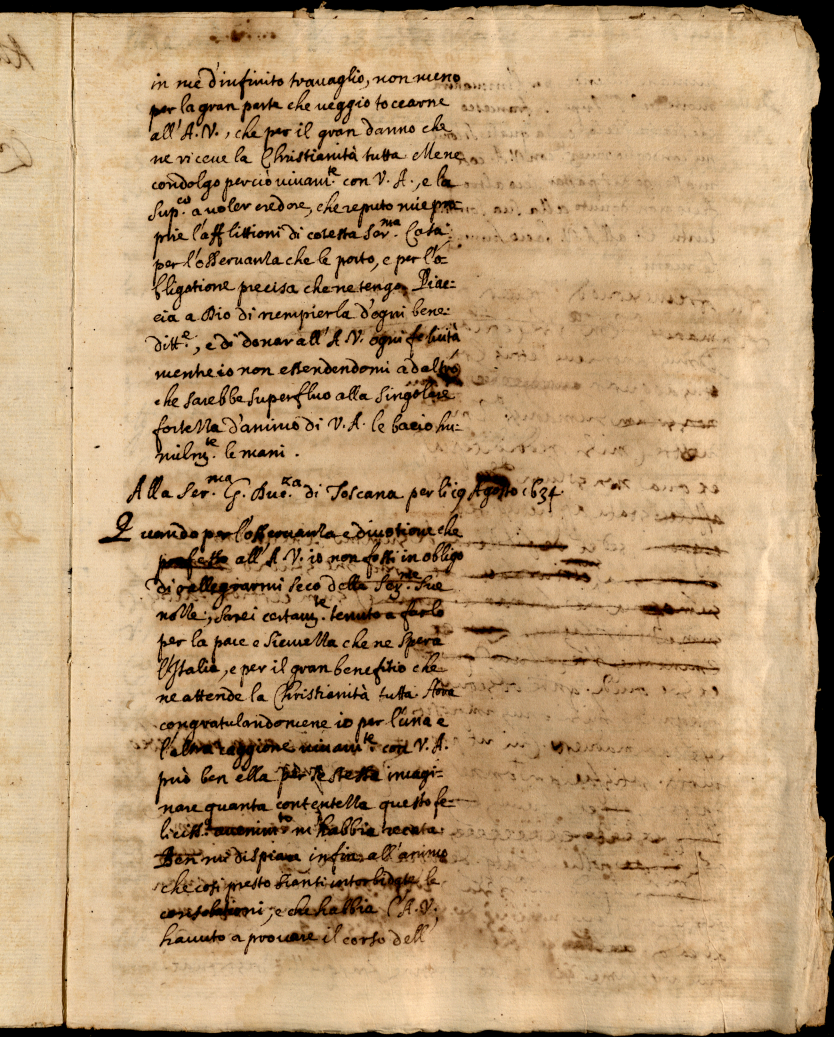 in me d'infinito trauaglio, non meno
per la gran parte che ueggio toccarne
all'A.V., che per il gran danno che
ne riceue la Christianità tutta. Mene
condolgo perciò uiuam.te con V.A., e la
sup.co a uoler credere, che reputo mie pro
prie l'afflittioni di cotesta Ser.ma Casa
per l'osseruanza che le porto, e per l'o-
bligatione precisa che ne tengo. Piac:
cia a Dio di riempierla d'ogni bene:
ditt.e, e di donar all'A.V. ogni felicità
mentre io non estendendomi ad altro
che sarebbe superfluo alla singolare
fortezza d'animo di V.A. le bacio hu:
milm.te le mani.
Alla Ser.ma G. Duc.za di Toscana per li 19 Agosto 1634
Quando per l'osseruanza e diuotione che
professo all'A.V. io non fossi in obligo
di rallegrarmi seco delle Ser.me sue
nozze, sarei certam.te tenuto a farlo
per la pace e sicurezza che ne spera
l'Italia, e per il gran benefitio che
ne attende la Christianità tutta. Hora
congratulandomene io per l'una e
l'altra raggione uiuam.te con V.A.
può ben ella per se stessa imagi:
nare quanta contentezza questo fe-
liciss.o auuenim.to m'habbia recata.
Ben mi dispiace infin all'animo
che così presto sianti intorbidate le
consolationi, e che habbia l'A.V.
hauuto a prouare il corso dell'